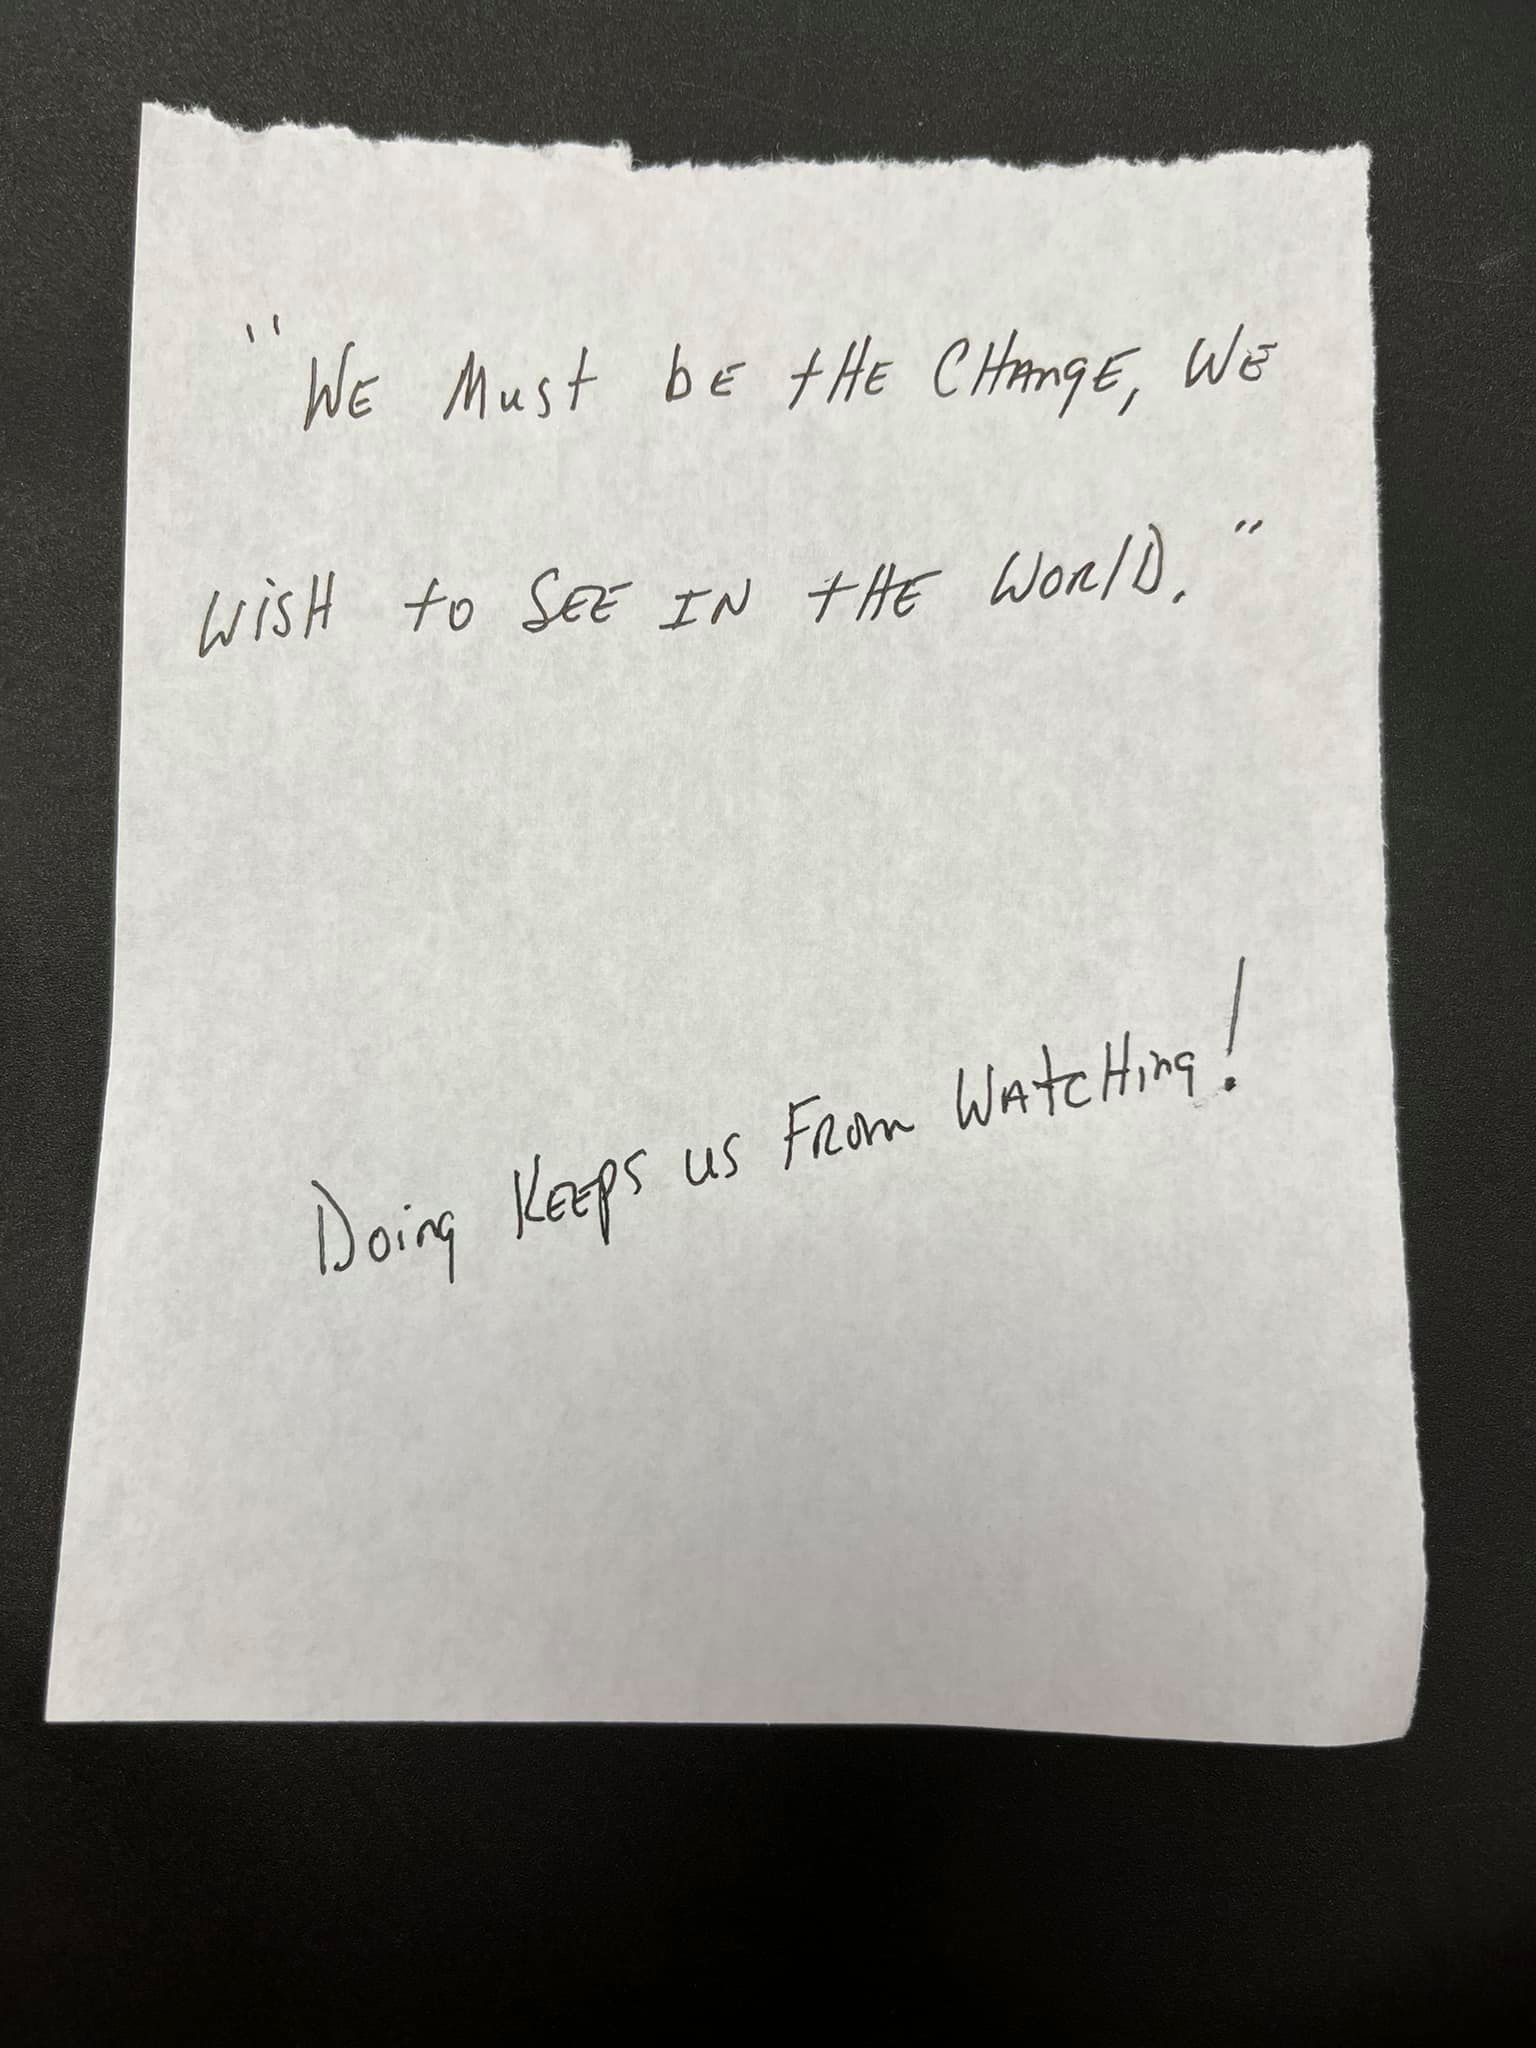 "We Must be the Change, We
wish to See in the World."
Doing Keeps us From Watching!